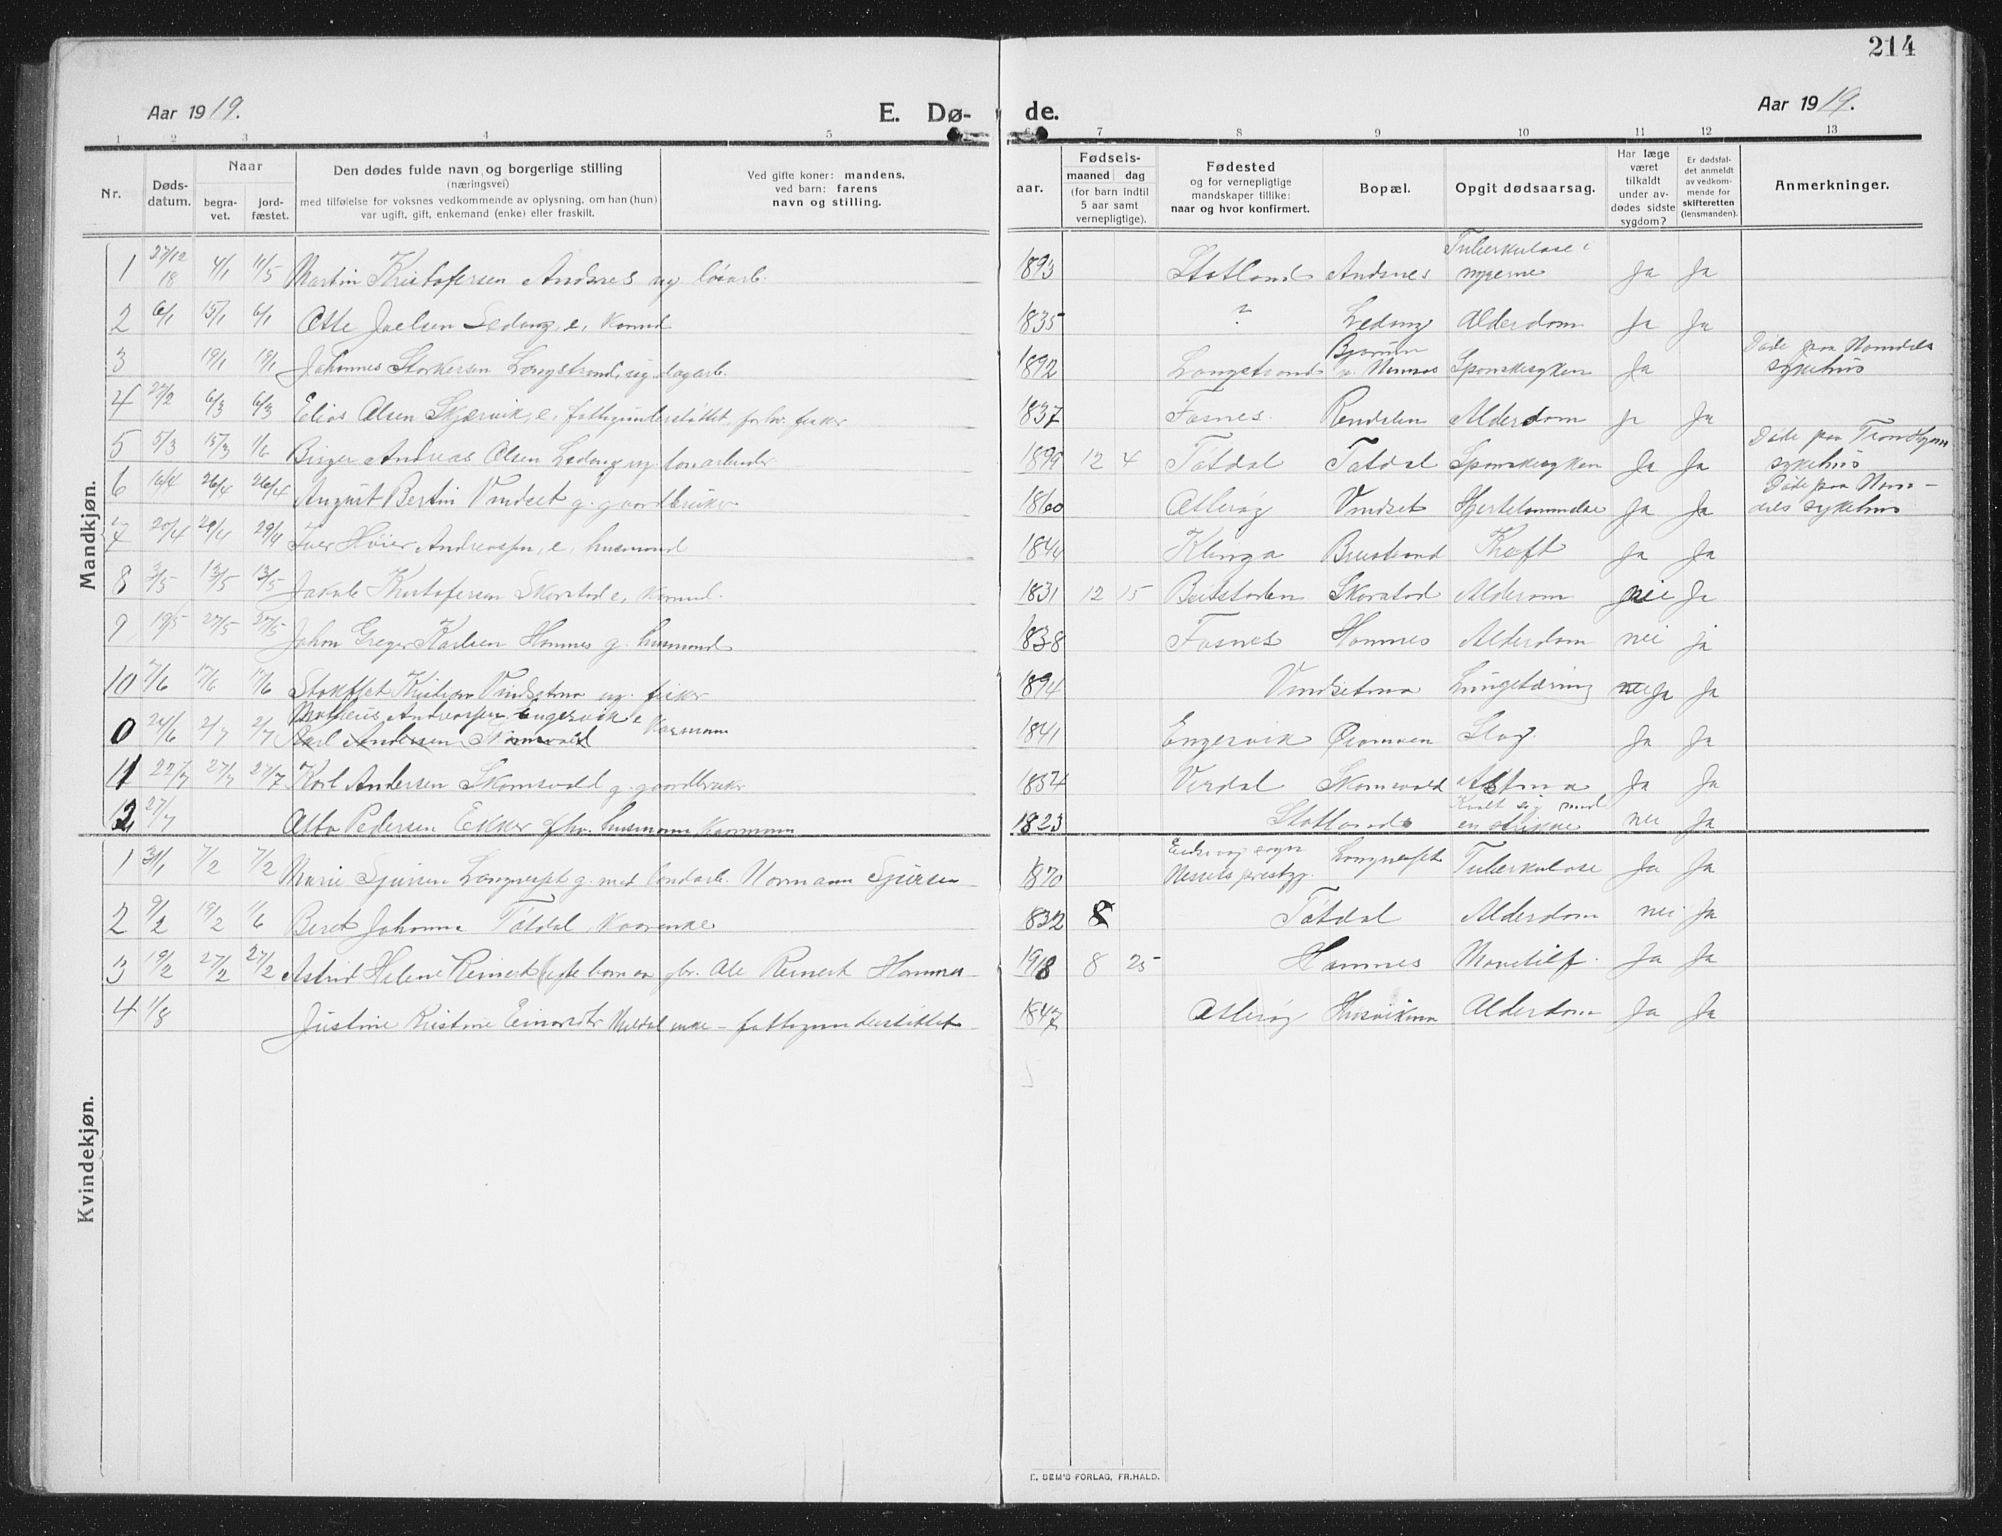 214
Aar 1919.
E. Dø-
de.
Aar 1919.
1 2 3 4 5 7 8 9 10 11 12 13
Nr.
Døds-datum.
Naar
begra-vet.
jord-fæstet.
Den dødes fulde navn og borgerlige stilling
(næringsvei)
med tilføielse for voksnes vedkommende av oplysning, om han (hun)
var ugift, gift, enkemand (enke) eller fraskilt.
Ved gifte koner: mandens,
ved barn: farens
navn og stilling.
aar.
Fødsels-
maaned dag
(for barn indtil
5 aar samt
vernepligtige).
Fødested
og for vernepligtige
mandskaper tillike:
naar og hvor konfirmert.
Bopæl.
Opgit dødsaarsag.
Har læge
været
tilkaldt
under av-
dødes sidste
sygdom?
Er dødsfal-
det anmeldt
av vedkom-
mende for
skifteretten
(lensmanden).
Anmerkninger.
Mandkjøn.
1 27/12 18 4/1 11/5 Martin Kristofersen Andsnes ug. 1893 Statland Andsnes Tuberkulose i nyrerne Ja Ja
2 6/1 15/1 6/1 Otte Joelsen Ledang, e, 1835 ? Ledang Alderdom Ja Ja
3 19/1 19/1 Johannes Storkersen Langstrand, ug dagarb. 1892 Langstrand Spanskesyken Ja Døde paa Namdals sykehus
4 27/2 6/3 6/3 Elias Olsen Skjærvik, e, fattigunderstøttet, forhv. fisker 1837 Fosnes. Rendalen Alderdom ja Ja
5 5/3 15/3 1/6 Birger Andreas Olsen Ledang ug 1899 12 4 Tøtdal Tøtdal Spanskesyken Ja Ja Døde paa Trondhjem sykehus
6 16/4 26/4 26/4 August Bertin Vindset g. gaardbruker 1860 Otterøy Vindset Hjertelammelse Ja Ja Døde paa Nam-dals sykehus
7 20/4 29/4 29/4 Iver Høier Andreassen, e, husmand 1844 Klinga Breistrand Kræft Ja Ja
8 3/5 13/5 13/5 Jakob Kristofersen Skorstad e, 1831 12 15 Beitstaden Skorstad Alderom nei Ja
9 19/5 27/5 27/5 Johan Greger Karlsen Hamnes g. husmand 1838 Fosnes Hamnes Alderdom nei ja
10 7/6 17/6 17/6 Kristian Vindsetmo ug. fisker 1894 Vindsetmo Lungetæring nei Ja Ja
0 24/6 2/7 2/7 Matheus Andreassen Engesvik e Kaarmann
Karl Andersen Skomsvold 1841 Engesvik Slag. Ja Ja
11 22/7 27/7 27/7 Karl Andersen Skomsvold g. gaardbruker 1837 Verdal Skomsvold Astma Ja Ja
12 27/7 Otto Pedersen Ekker husmann Kaarmann 1823 Statland Kvalt sig med en nei Ja
Kvindekjøn.
1 31/1 7/2 7/2 Marie Sjursen Langneset g. med Normann Sjursen 1870 Eidsvaag sogn Nessets prestgj. Langneset Tuberkulose Ja Ja
2 9/2 19/2 1/6 Beret Johanna Tøtdal, kaarenke 1832 8 Tøtdal Alderdom nei Ja
3 19/2 27/2 27/2 Astrid Helene Reinert egtebarn av gbr. Ole Reinert Hamnes 1918 8 25 Hamnes Ja Ja
4 1/8 Justine Kristine Einarsdtr. enke - fattigunderstøttet 1847 Otterøy Alderdom Ja Ja
E. SEM'S FORLAG, FR.HALD.